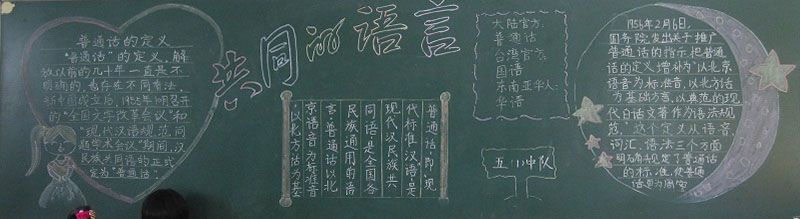 共同的语言
普通话的定义
"普通话"的定义,解
放以前的几十年一直是不
明确的,也存在不同看法。
新中国成立后,1955年10月召开
的"全国文字改革会议"和
"现代汉语规范问
题学术会议"期间,汉
民族共同语的正式
定为"普通话"。
普通话即"现
代标准汉语"是
现代汉民族共
同语是全国各
民族通用的语
言。普通话以北
京语音为标准音
以北方话为基
大陆官方:
普通话
台湾官方:
国语
东南亚华人:
华语
五(1)中队
1956年2月6日,
国务院发出关于推广
普通话的指示,把普通
话的定义增补为"以北京
语音为标准音,以北方话
为基础方言,以典范的现
代白话文著作为语法规
范"。这个定义从语音、
词汇、语法三个方面
明确规定了普通话
的标准,使普通
话更为周密